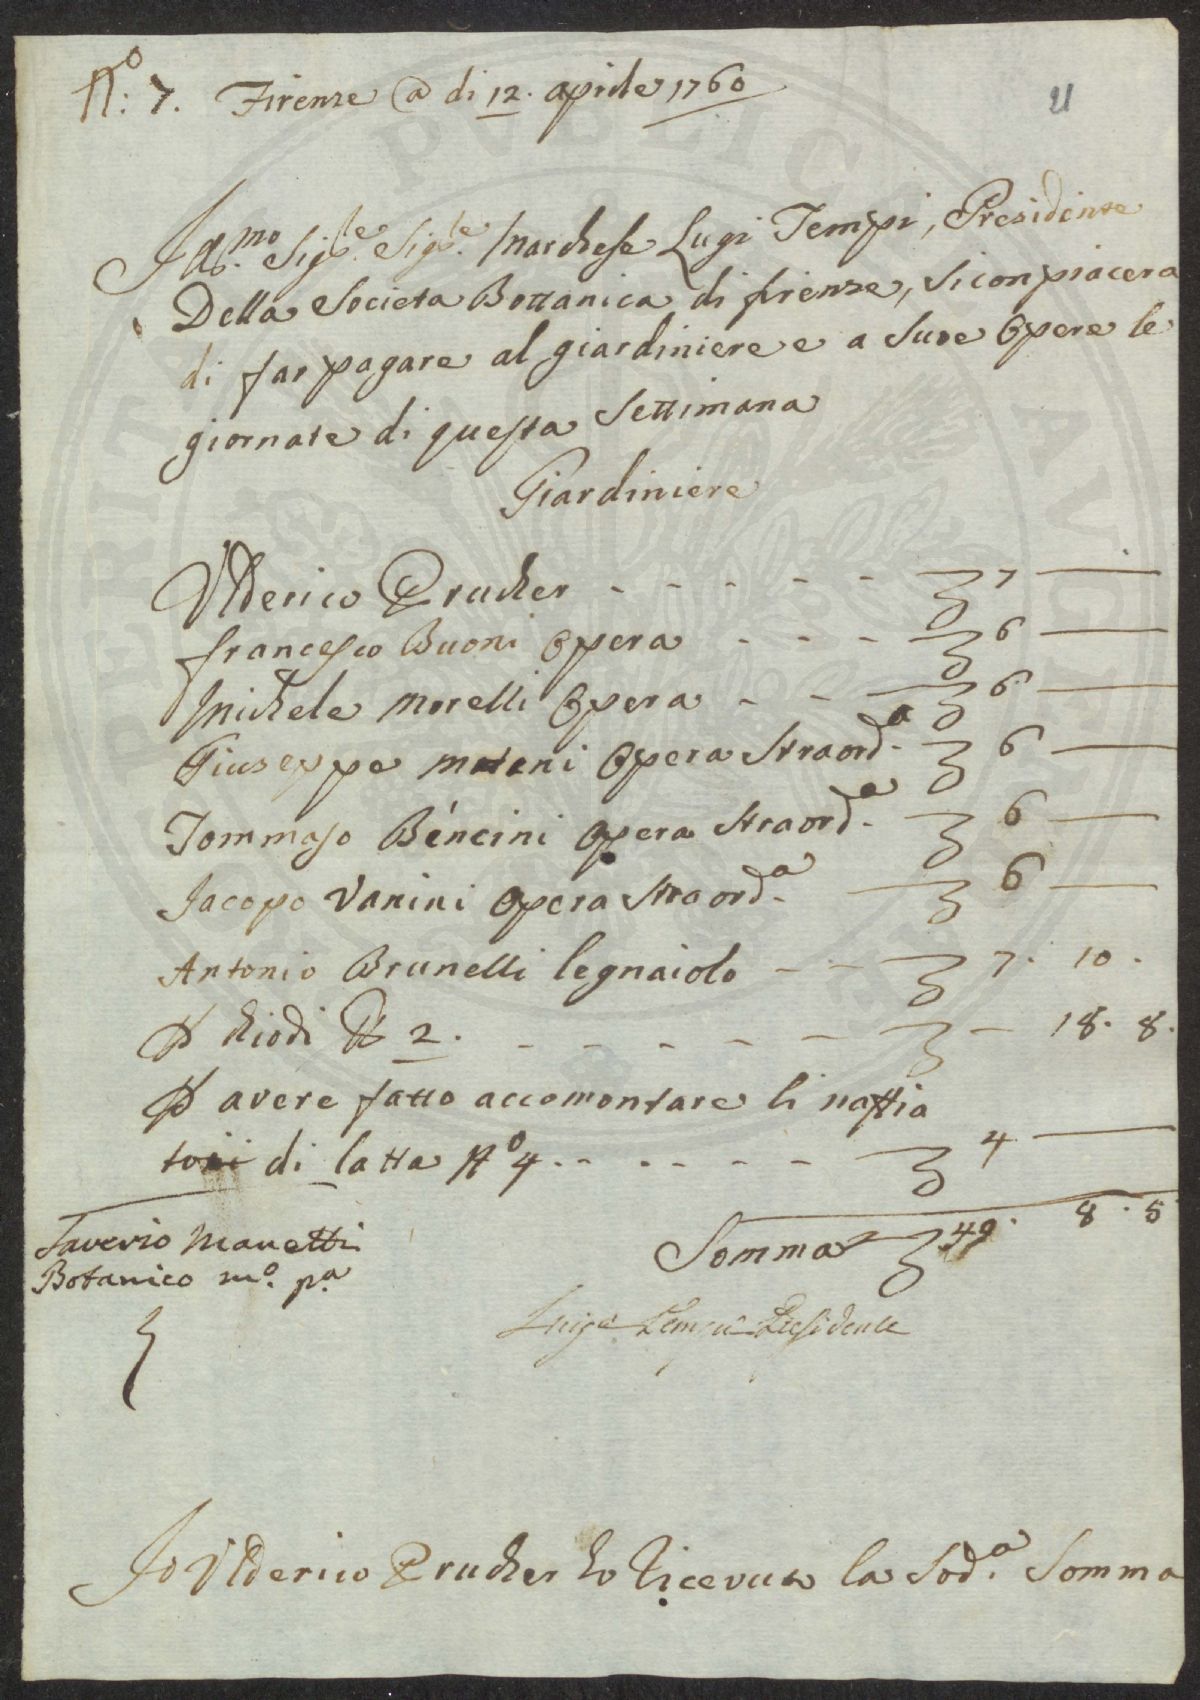 N.o 7. Firenze @ di 12. aprile 1760
11
Ill.mo Sig.re Sig.re Marchese Lugi Tempi, Presidente
Della Societa Bottanica di firenze, si conpiacera
di far pagare al giardiniere e a sue Opere le
giornate di questa Settimana
Giardiniere
Ulderico Prucher - - - - - - 7 —
francesco Buoni Opera - - - 6 —
Michele Morelli Opera - - 6 —
Giuseppe Opera Straord.a 6 —
Tommaso Bencini Opera Straord.a 6 —
Jacopo Vanini Opera Straord.a 6 —
Antonio Brunelli legnaiolo - - - 7. 10.
P chiodi lb 2. - - - - - - — 18. 8.
P avere fatto accomontare li naffia
toii di latta N.o 4. - - - - - - 4 —
Saverio Manetti
Botanico m.o p.a
Somma 49. 8. 5
Luigi Tempi Presidente
Io Ulderico Prucher ho Ricevuto la Sod.a Somma